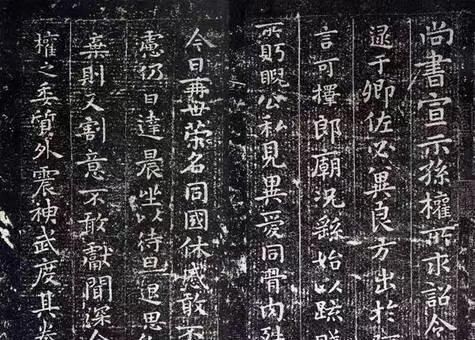 尚書宣示孫權所求詔令
逮于卿佐必冀良方出於阿
言可擇郎廟況繇始以疏賤
所盻睨公私見異愛同骨肉殊
今日再世榮名同國休慼敢不
慮仍日達晨坐以待旦退思
棄則又割意不敢獻聞深
權之委質外震神武度其拳